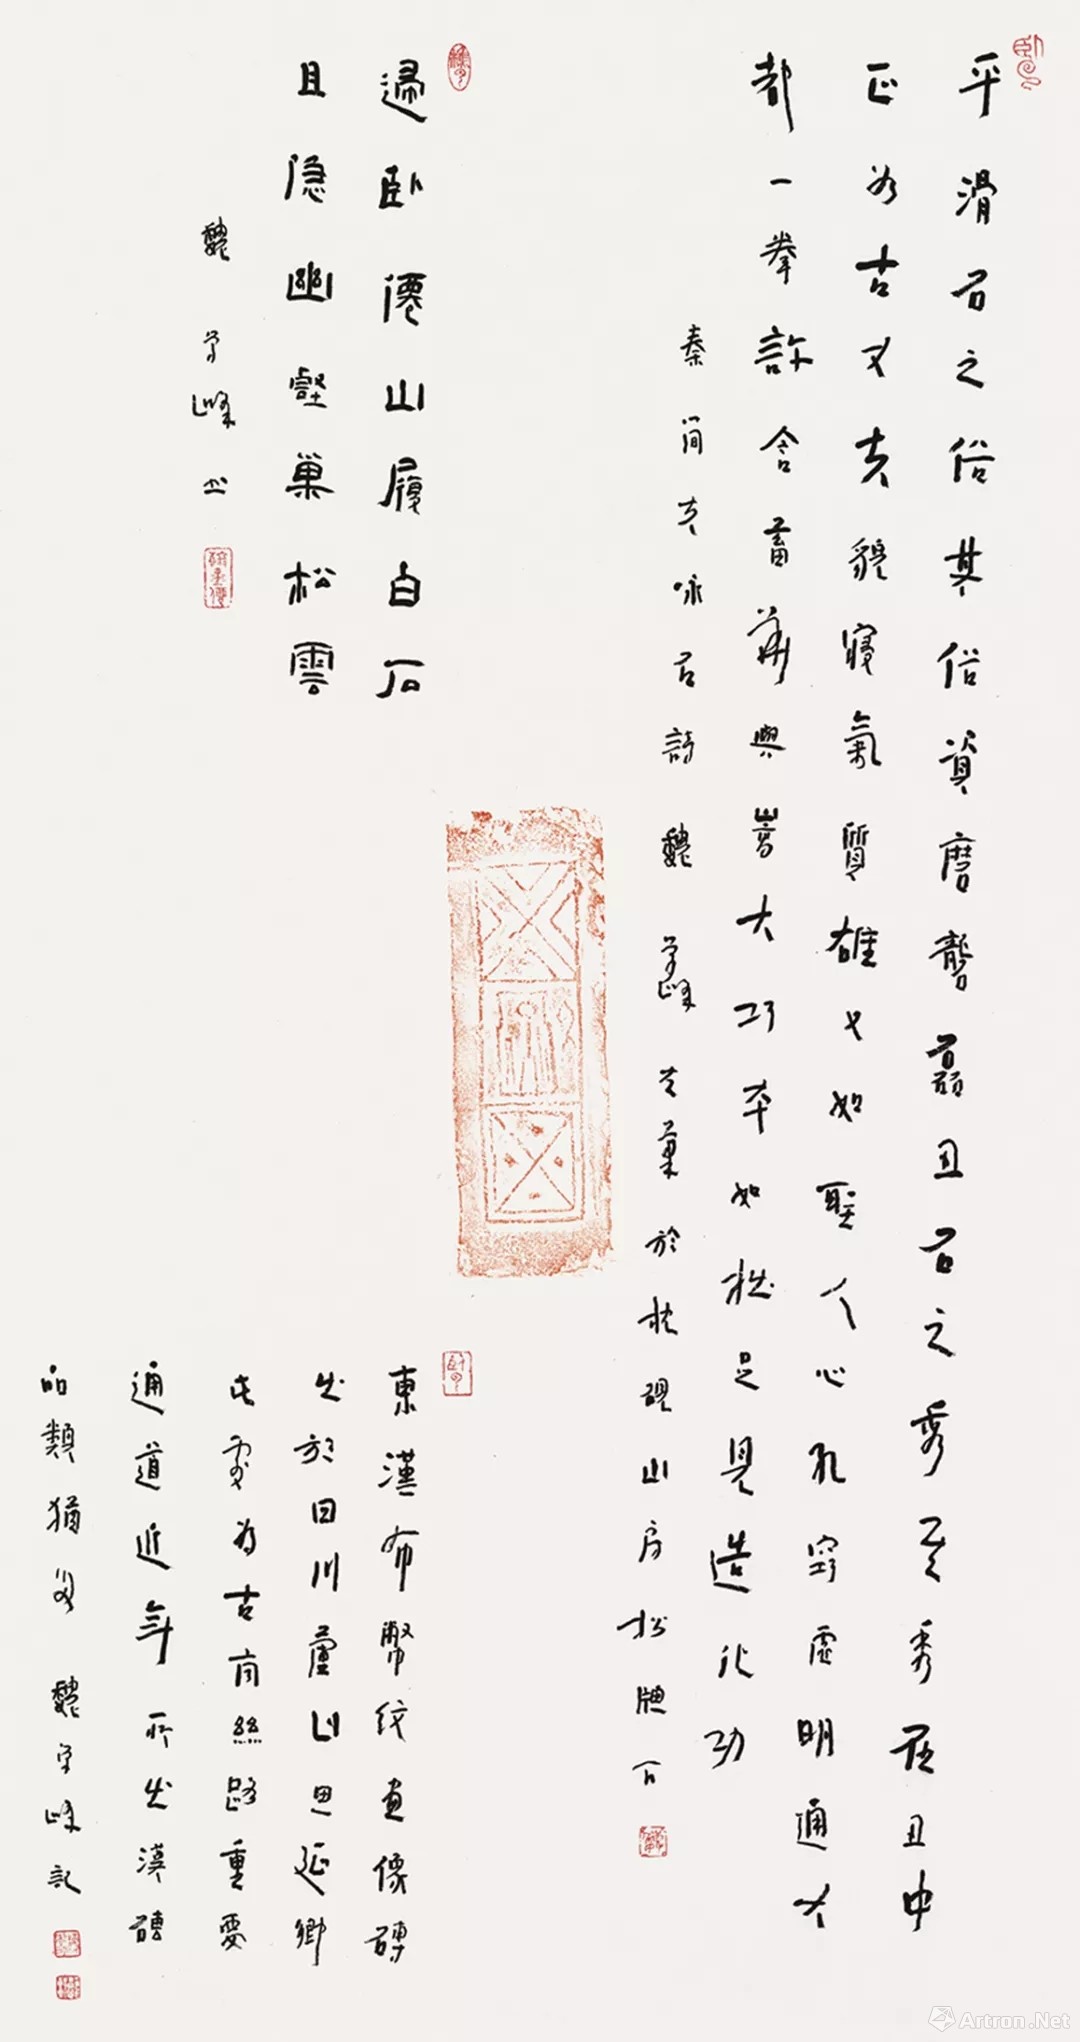 平滑石之俗其俗資磨礱磊丑石之秀是秀居丑中
正為古又去貌寢氣質雄又如聖人心孔竅虛明通大
都一拳許含蓄華與嵩大巧本如拙足見造化功
秦簡夫咏石詩魏學峰書於山房松窗下
遍卧僊山履白石
且隐幽壑巢松雲
魏學峰书
東漢布幣紋畫像磚
出於四川蘆山思延鄉
此處為古南絲路重要
通道近年所出漢磚
品類猶多魏學峰記
Artron.Net